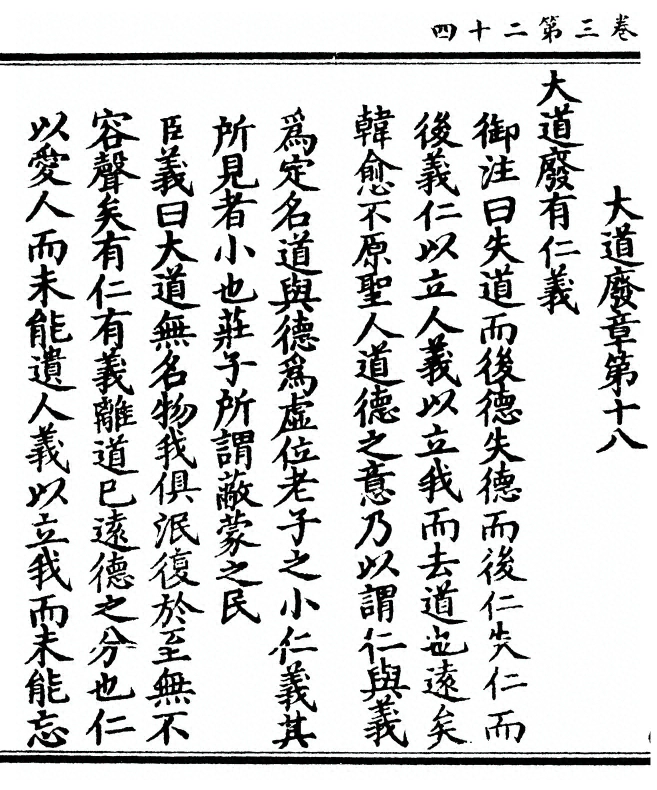 卷三第二十四
大道廢章第十八
大道廢有仁義
御注曰失道而後德失德而後仁失仁而
後義仁以立人義以立我而去道也遠矣
韓愈不原聖人道德之意乃以謂仁與義
爲定名道與德爲虛位老子之小仁義其
所見者小也莊子所謂蔽蒙之民
臣義曰大道無名物我俱泯復於至無不
容聲矣有仁有義離道已遠德之分也仁
以愛人而未能遺人義以立我而未能忘